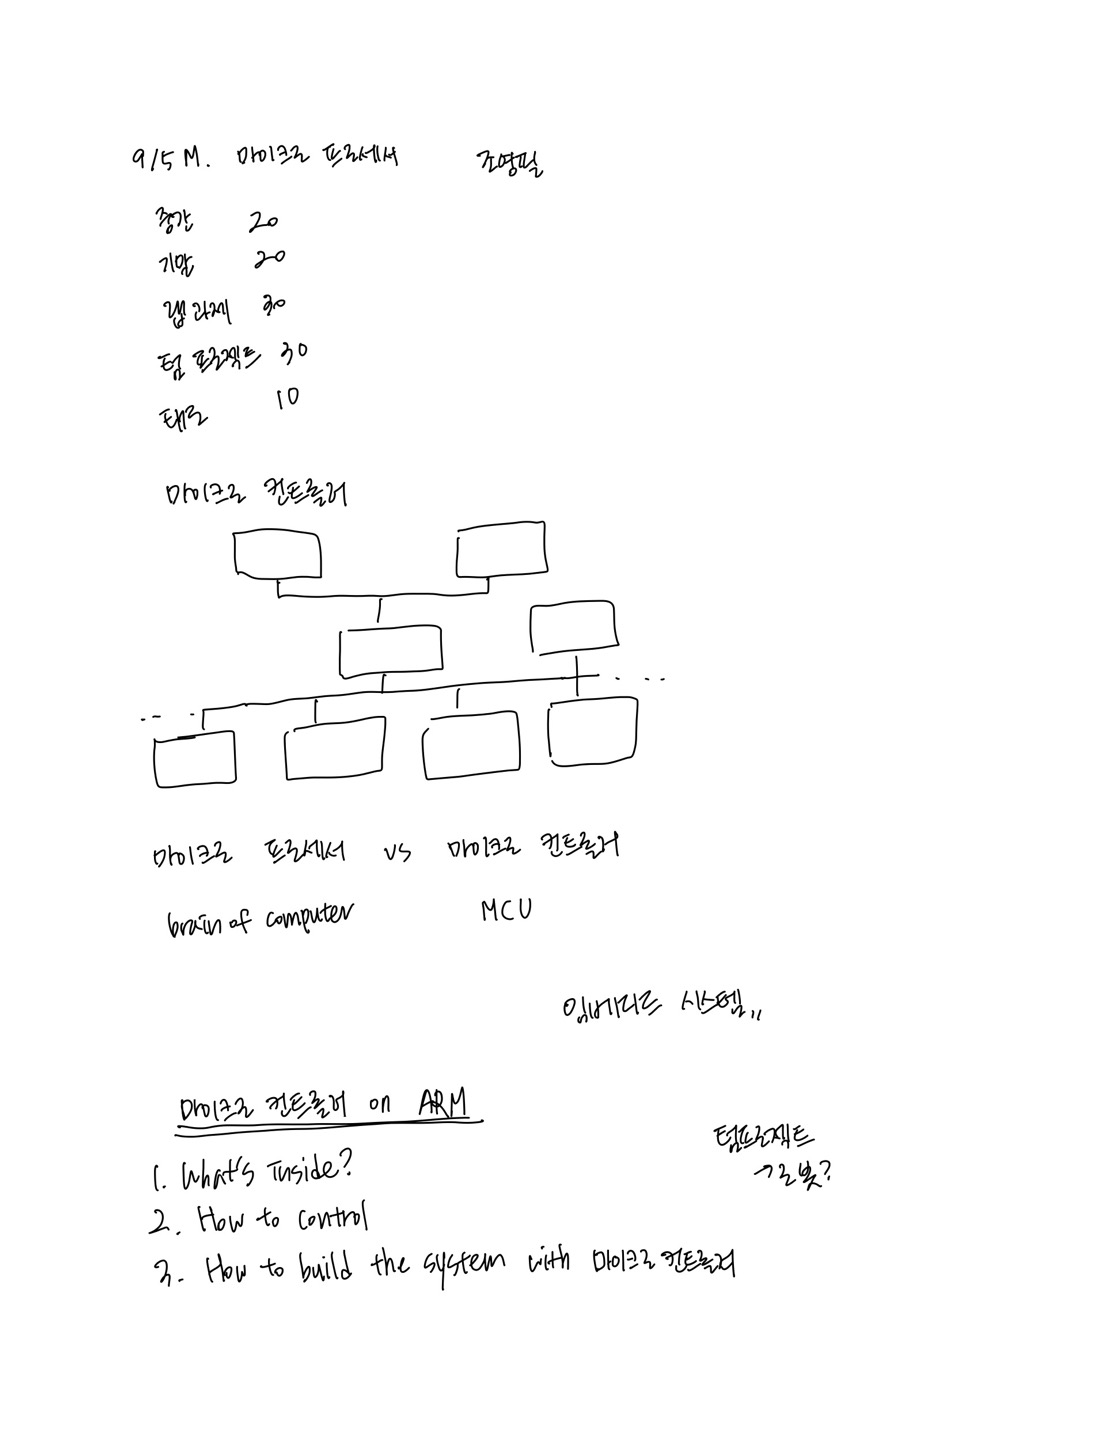 9/5 M. 마이크로 프로세서 조영필
중간 20
기말 20
랩 과제 30
텀 프로젝트 30
태도 10
마이크로 컨트롤러
마이크로 프로세서 vs 마이크로 컨트롤러
brain of computer MCU
임베디드 시스템,,
마이크로 컨트롤러 on ARM
1. What's Inside?
텀프로젝트
→로봇?
2. How to control
3. How to build the system with 마이크로 컨트롤러